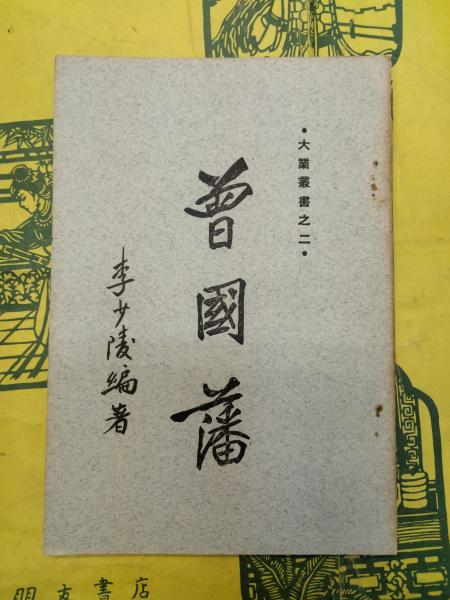 •大業叢書之二•
曾國藩
李少陵編著
朋友書店